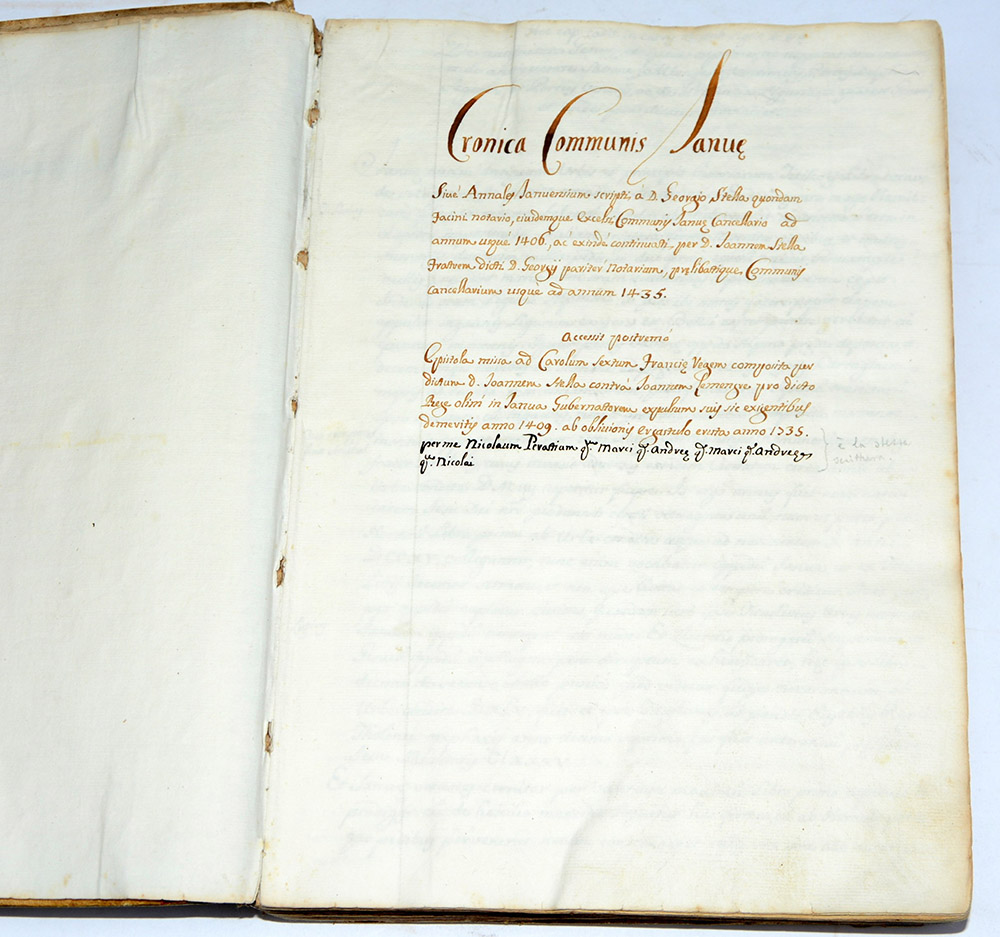 Cronica Communis Januę
Sivé Annales Januensium scripti, á D. Georgio Stella quóndam
Jacini notario, eiusdemque Excelsi Communis Januę Cancellario ad
annum usqué 1406, ac exindé continuati per D. Joannem Stella
Fratrem dicti D. Georgij paritér Notarium, prelibatique Communis
Cancellarium usqué ad annum 1435.
Accessit postremó
Epistola missa ad Carolum sextum Francię Regem composita per
dictum D. Joannem Stella contrá Joannum Lemengre pro dicto
Rege olim in Janua Gubernatorem expulsum suis sic exigentibus
demeritis anno 1409. ab oblivionis ergastulo eruta anno 1735.
per me Nicolaum Perassium q.m Marci q. Andreę q. Marci q. Andreę
q.m Nicolai
è la stessa
scrittura